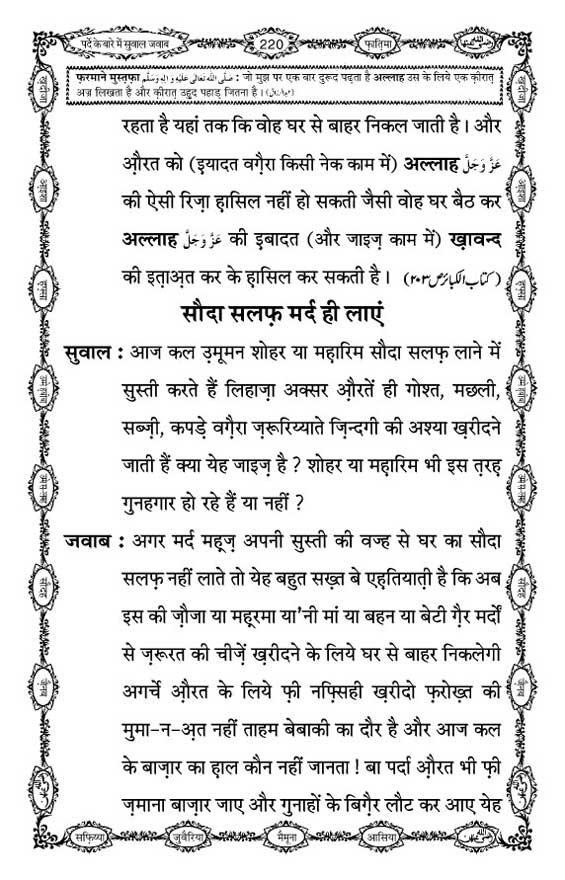 पर्दे के बारे में सुवाल जवाब
220
फ़ातिमा
फ़रमाने मुस्तफ़ा صَلَّى اللّٰهُ تَعَالٰى عَلَيْهِ وَاٰلِهٖ وَسَلَّم : जो मुझ पर एक बार दुरूद पढ़ता है अल्लाह उस के लिये एक क़ीरात़
अज्र लिखता है और क़ीरात़ उहुद पहाड़ जितना है।
रहता है यहां तक कि वोह घर से बाहर निकल जाती है। और
औ़रत को (इ़यादत वग़ैरा किसी नेक काम में) अल्लाह عَزَّوَجَلَّ
की ऐसी रिज़ा ह़ासिल नहीं हो सकती जैसी वोह घर बैठ कर
अल्लाह عَزَّوَجَلَّ की इ़बादत (और जाइज़ काम में) ख़ावन्द
की इत़ाअ़त कर के ह़ासिल कर सकती है। (کتاب الکبائر ص۲۰۳)
सौदा सलफ़ मर्द ही लाएं
सुवाल : आज कल उ़मूमन शोहर या मह़ारिम सौदा सलफ़ लाने में
सुस्ती करते हैं लिहाज़ा अक्सर औ़रतें ही गोश्त, मछली,
सब्ज़ी, कपड़े वग़ैरा ज़रूरिय्याते ज़िन्दगी की अश्या ख़रीदने
जाती हैं क्या येह जाइज़ है ? शोहर या मह़ारिम भी इस त़रह़
गुनहगार हो रहे हैं या नहीं ?
जवाब : अगर मर्द मह़्ज़ अपनी सुस्ती की वज्ह से घर का सौदा
सलफ़ नहीं लाते तो येह बहुत सख़्त बे एह़तियात़ी है कि अब
इस की ज़ौजा या मह़रमा या'नी मां या बहन या बेटी ग़ैर मर्दों
से ज़रूरत की चीज़ें ख़रीदने के लिये घर से बाहर निकलेगी
अगर्चे औ़रत के लिये फ़ी नफ़्सिही ख़रीदो फ़रोख़्त की
मुमा-न-अ़त नहीं ताहम बेबाकी का दौर है और आज कल
के बाज़ार का ह़ाल कौन नहीं जानता ! बा पर्दा औ़रत भी फ़ी
ज़माना बाज़ार जाए और गुनाहों के बिग़ैर लौट कर आए येह
सफ़िय्या
जुवैरिया
मैमूना
आसिया